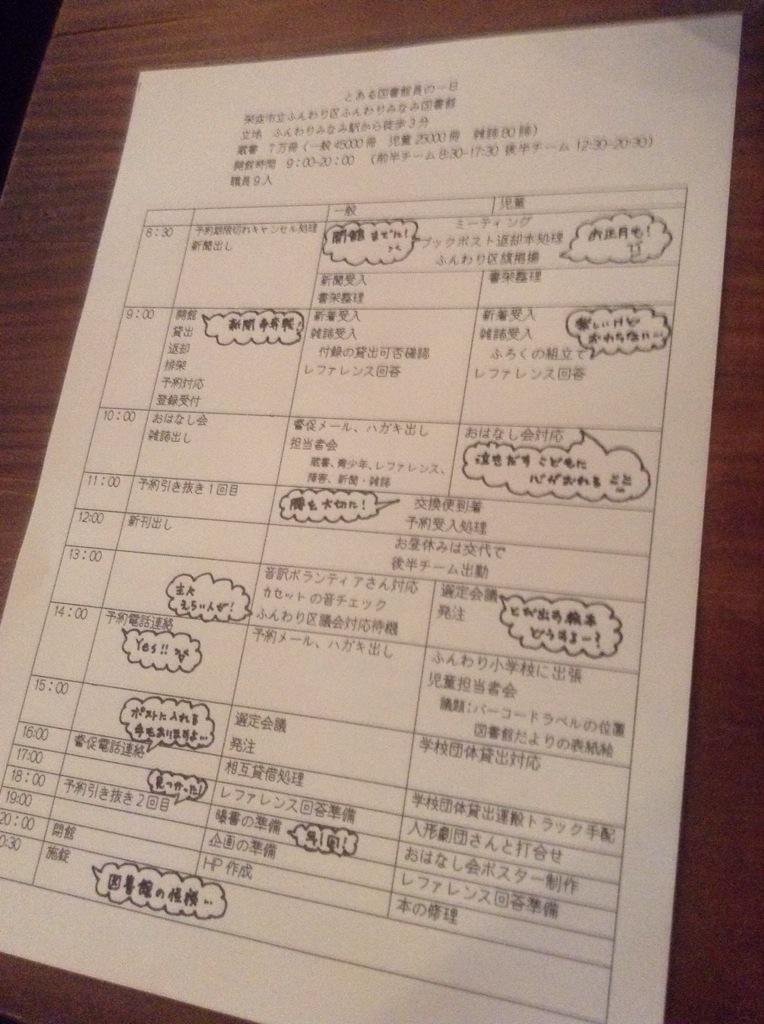 とある図書館員の一日
栄庄市立ふんわり区ふんわりみなみ図書館
立地 ふんわりみなみ駅から徒歩3分
蔵書 7万冊(一般45000冊 児童25000冊 雑誌80誌)
開館時間 9:00-20:00 (前半チーム8:30-17:30 後半チーム12:30-20:30)
職員9人
一般 児童
8:30 予約期限切れキャンセル処理
新聞出し
開館までに!
ミーティング
ブックポスト返却本処理
ふんわり区旗掲揚
お正月も!
新聞受入
書架整理
書架整理
9:00 開館
貸出
返却
排架
予約対応
登録受付
新聞争奪戦!
新着受入
雑誌受入
付録の貸出可否確認
レファレンス回答
新着受入
雑誌受入
ふろくの組立て
レファレンス回答
楽しいけど
おわらない…
10:00 おはなし会
雑誌出し
督促メール、ハガキ出し
担当者会
蔵書、青少年、レファレンス、
障害、新聞・雑誌
おはなし会対応
泣きだすこどもに
心がおれること
11:00 予約引き抜き1回目
腰を大切に!
交換便到着
予約受入処理
12:00 新刊出し
お昼休みは交代で
後半チーム出勤
13:00
音訳ボランティアさん対応
カセットの音チェック
ふんわり区議会対応待機
えらいんぜ!
選定会議
発注
とび出す絵本
どうするー?
14:00 予約電話連絡
Yes!!
予約メール、ハガキ出し
ふんわり小学校に出張
児童担当者会
議題:バーコードラベルの位置
図書館だよりの表紙絵
15:00
ポストに入れる
手もありますよ…
選定会議
発注
学校団体貸出対応
16:00 督促電話連絡
相互貸借処理
17:00
見つかった!
レファレンス回答準備
学校団体貸出運搬トラック手配
18:00 予約引き抜き2回目
曝書の準備
人形劇団さんと打合せ
19:00
企画の準備
おはなし会ポスター制作
20:00 閉館
HP作成
レファレンス回答準備
0:30 施錠
図書館の怪談…
本の修理